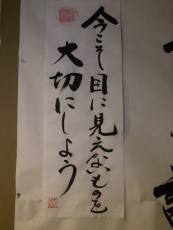 今こそ目に見えないものを
大切にしよう